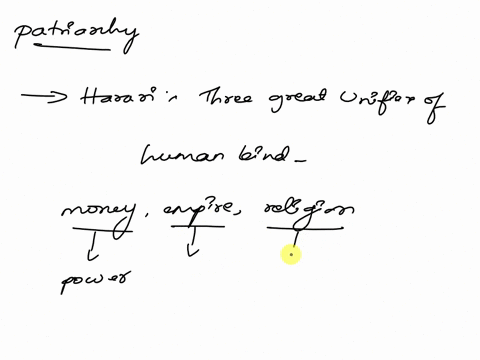 patriarhy
→ Harari: Three great Unifier of
human kind -
money, empire, religion
power